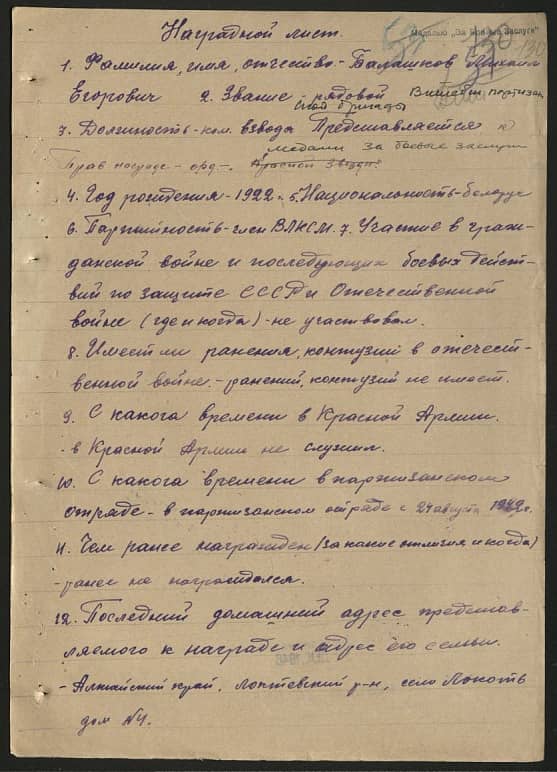 Медалью „За Боевые Заслуги"
130
Наградной лист.
1. Фамилия, имя, отчество - Балашков Михаил
Егорович 2. Звание - рядовой Вилейск. партизан
ской бригады
3. Должность - ком. взвода Представляется к
медали за боевые заслуги
Прав. награде - орд -. Красной Звезды.
4. Год рождения - 1922. 5. Национальность - белорус
6. Партийность - член ВЛКСМ. 7. Участие в граж-
данской войне и последующих боевых дейст-
вий по защите СССР и Отечественной
войне (где и когда) - не участвовал.
8. Имеет ли ранения, контузий в отечест-
венной войне. - ранений, контузий не имеет.
9. С какога времени в Красной Армии.
- в Красной Армии не служил.
10. С какога времени в партизанском
отряде - в партизанском отряде с 24 августа г.
11. Чем ранее награжден (за какие отличия и когда)
- ранее не награждался.
12. Последний домашний адрес представ-
ляемого к награде и адрес его семьи.
- Алтайский край, Локтевский р-н, село Локоть
дом №4.